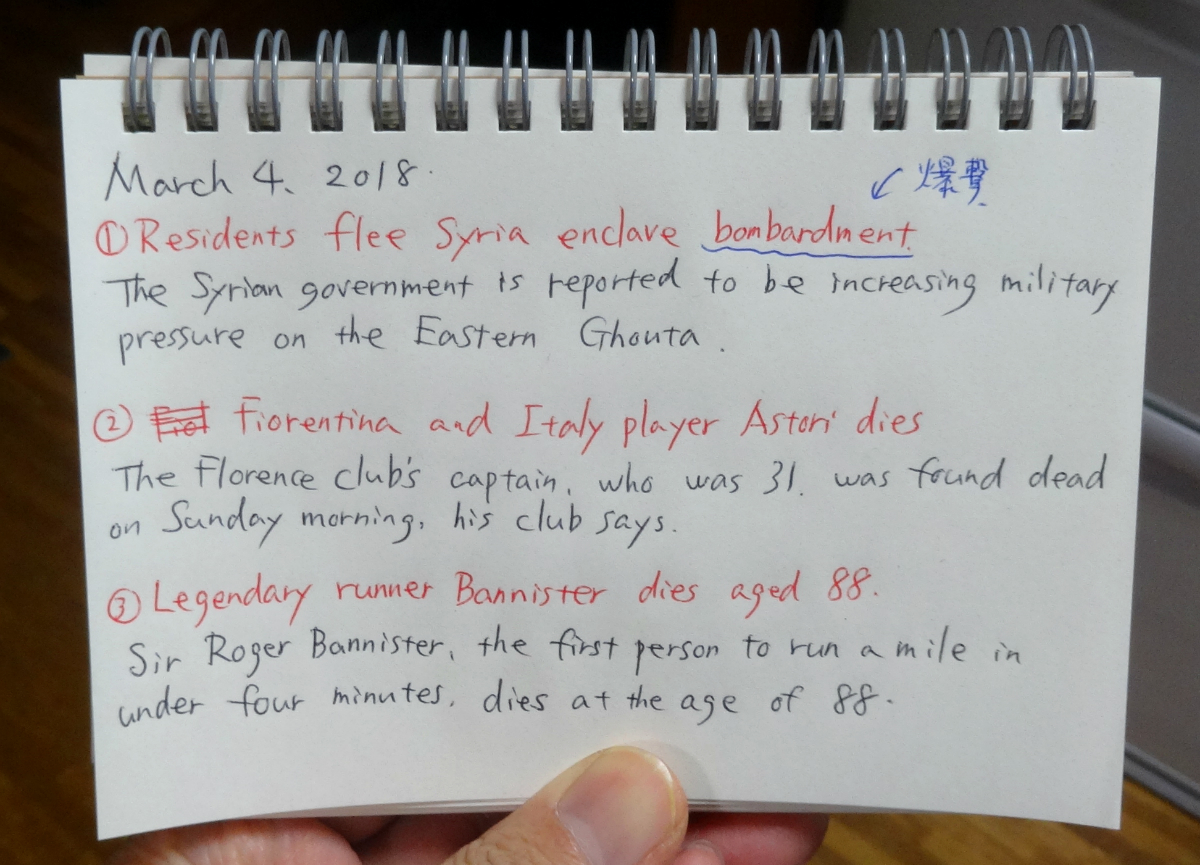 March 4, 2018.
↙ 爆撃
① Residents flee Syria enclave bombardment
The Syrian government is reported to be increasing military
pressure on the Eastern Ghouta.
② Fiorentina and Italy player Astori dies
The Florence club's captain, who was 31, was found dead
on Sunday morning, his club says.
③ Legendary runner Bannister dies aged 88.
Sir Roger Bannister, the first person to run a mile in
under four minutes, dies at the age of 88.